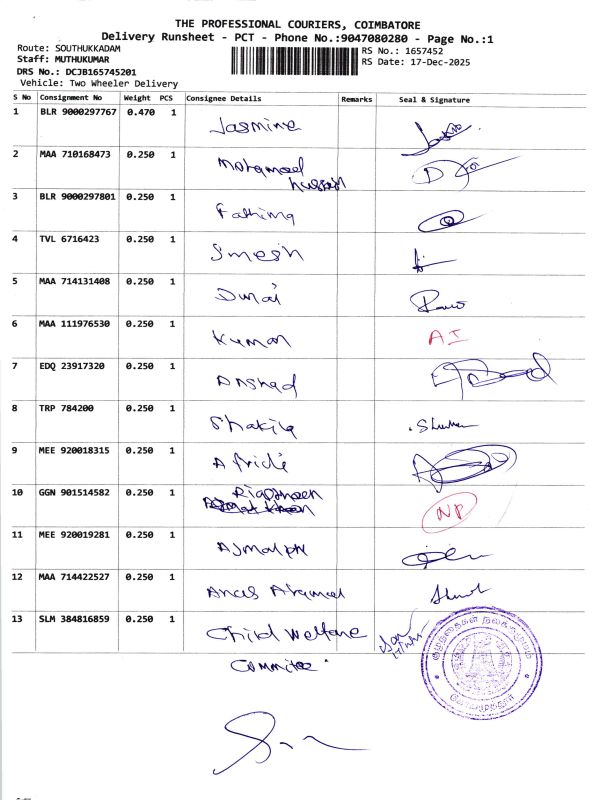 THE PROFESSIONAL COURIERS, COIMBATORE
Delivery Runsheet - PCT - Phone No.:9047080280 - Page No.:1
Route: SOUTHUKKADAM
RS No.: 1657452
Staff: MUTHUKUMAR
RS Date: 17-Dec-2025
DRS No.: DCJB165745201
Vehicle: Two Wheeler Delivery
S No Consignment No Weight PCS Consignee Details Remarks Seal & Signature
1 BLR 9000297767 0.470 1 Jasmine
2 MAA 710168473 0.250 1 Mohamed
Hussain
3 BLR 9000297801 0.250 1 Fathima
4 TVL 6716423 0.250 1
5 MAA 714131408 0.250 1 Durai
6 MAA 111976530 0.250 1 Kumar AI
7 EDQ 23917320 0.250 1 Arshad
8 TRP 784200 0.250 1 Shakila
9 MEE 920018315 0.250 1 Afridi
10 GGN 901514582 0.250 1 NP
11 MEE 920019281 0.250 1
12 MAA 714422527 0.250 1
13 SLM 384816859 0.250 1 Child Welfare
Committee